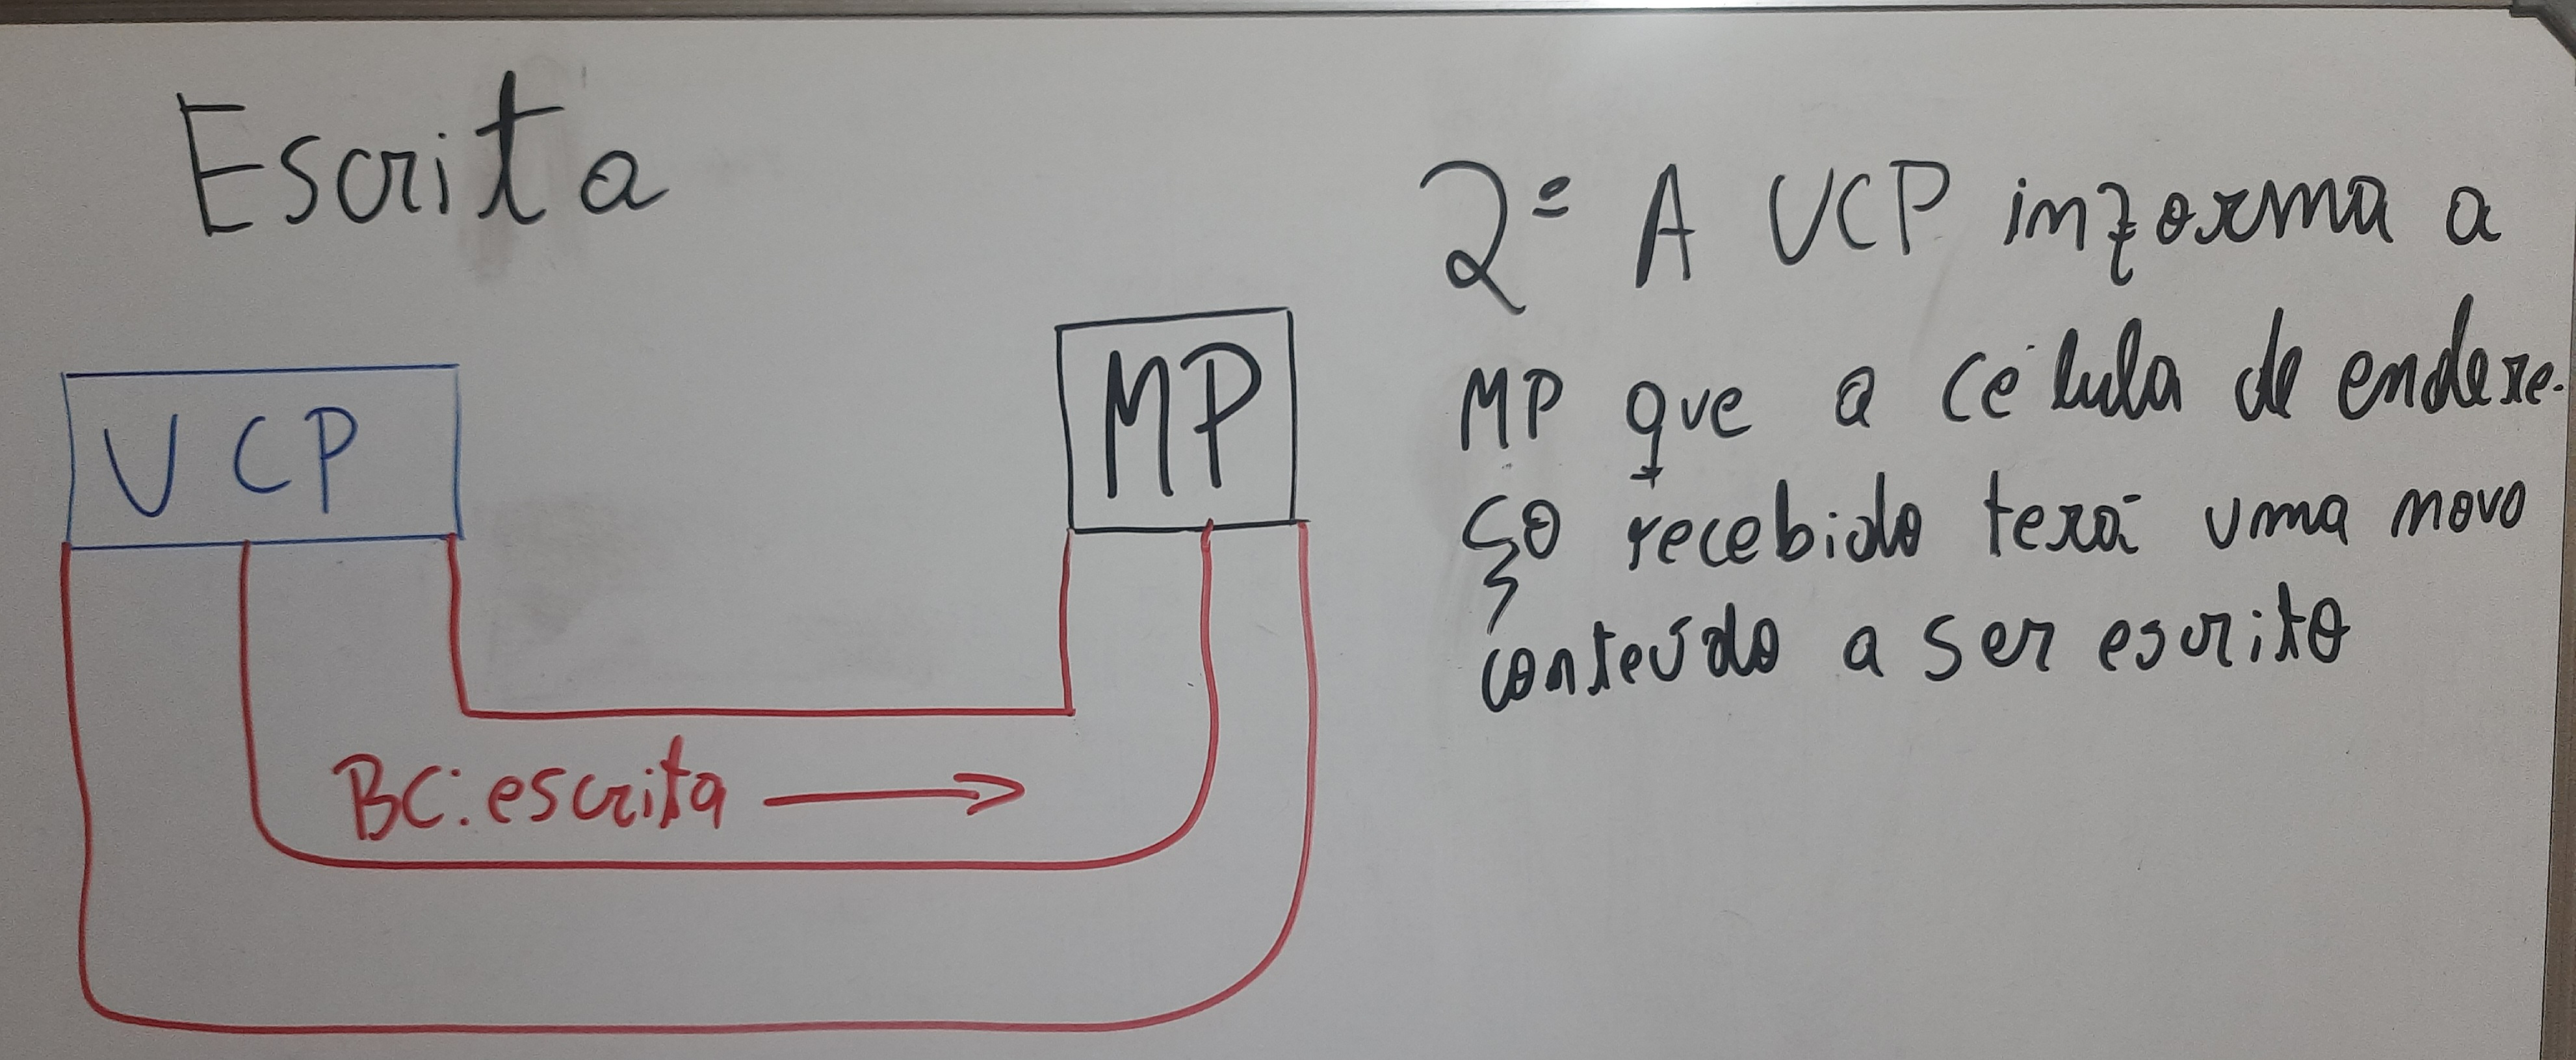 Escrita
UCP
MP
BC: escrita
2º A UCP informa a
MP que a célula de endere-
ço recebido terá uma novo
conteúdo a ser escrito